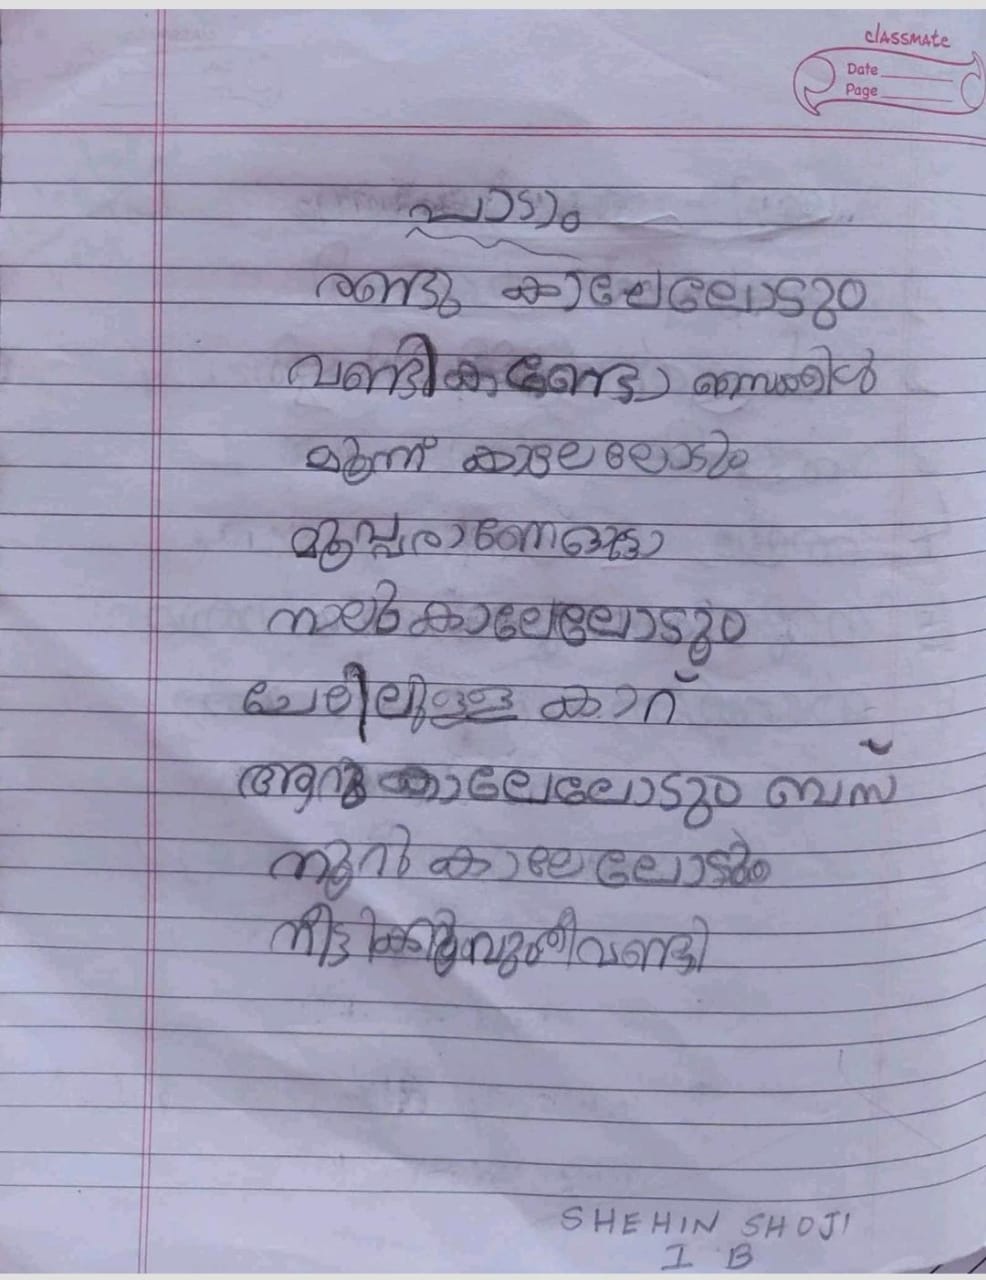 classmate
Date
Page
പാടാം
രണ്ടു കാലേലോടും
വണ്ടി കണ്ടോ സൈക്കിൾ
മൂന്ന് കാലേലോടും
മൂപ്പരാണേ
നാലു കാലേലോടും
ചേലിലുള്ള കാറ്
ആറു കാലേലോടും ബസ്
നൂറു കാലേലോടും
SHEHIN SHOJI
I B